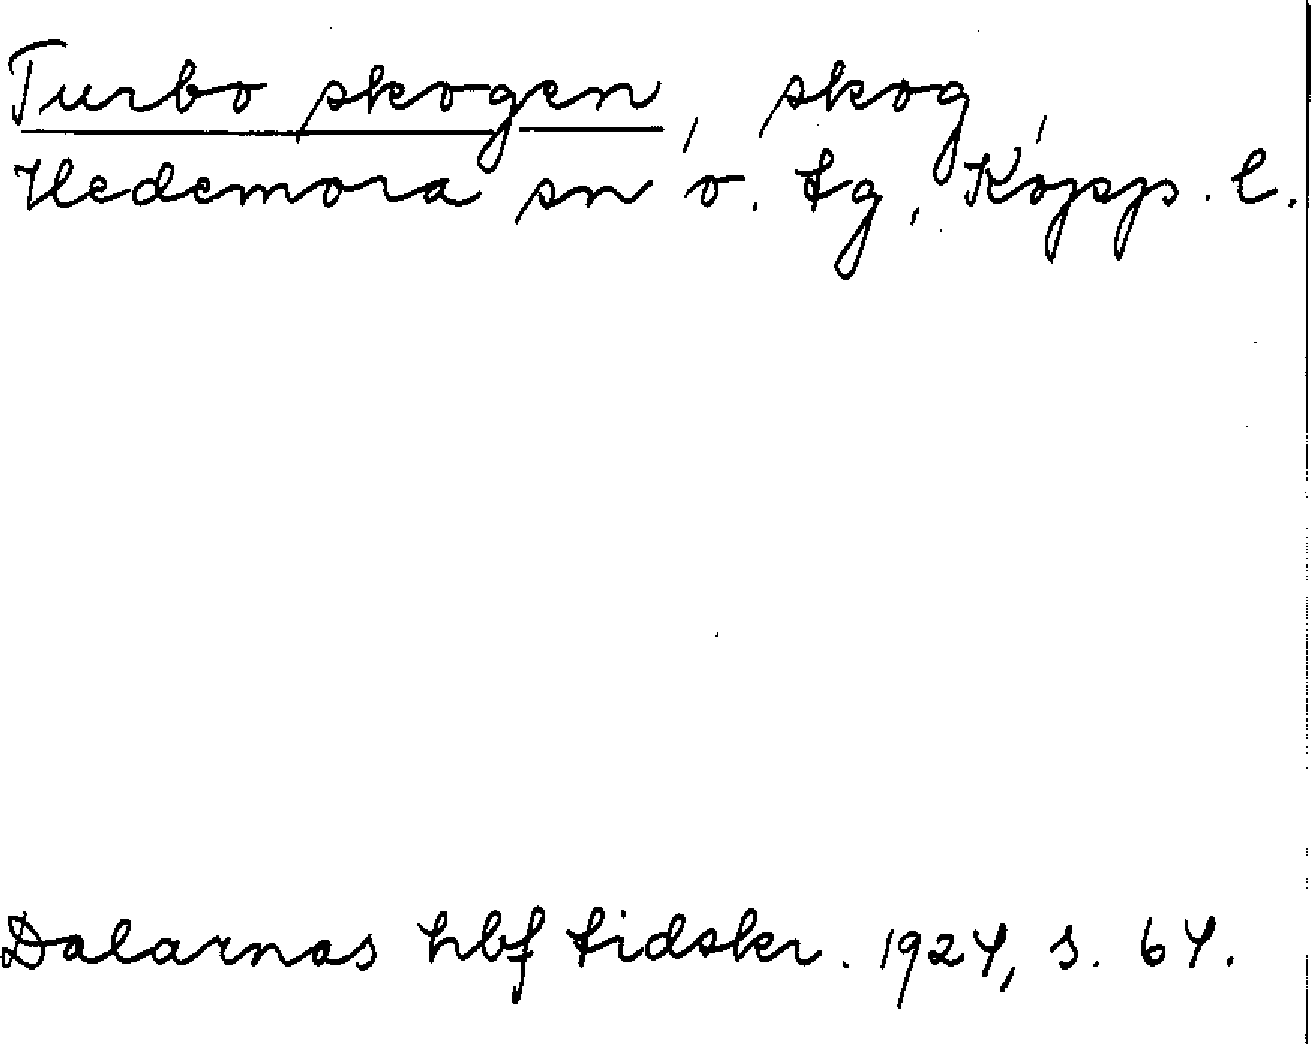 Turbo skogen, skog,
Hedemora sn o. tg, Kopp. l.
Dalarnas hbf tidskr. 1924, s. 64.